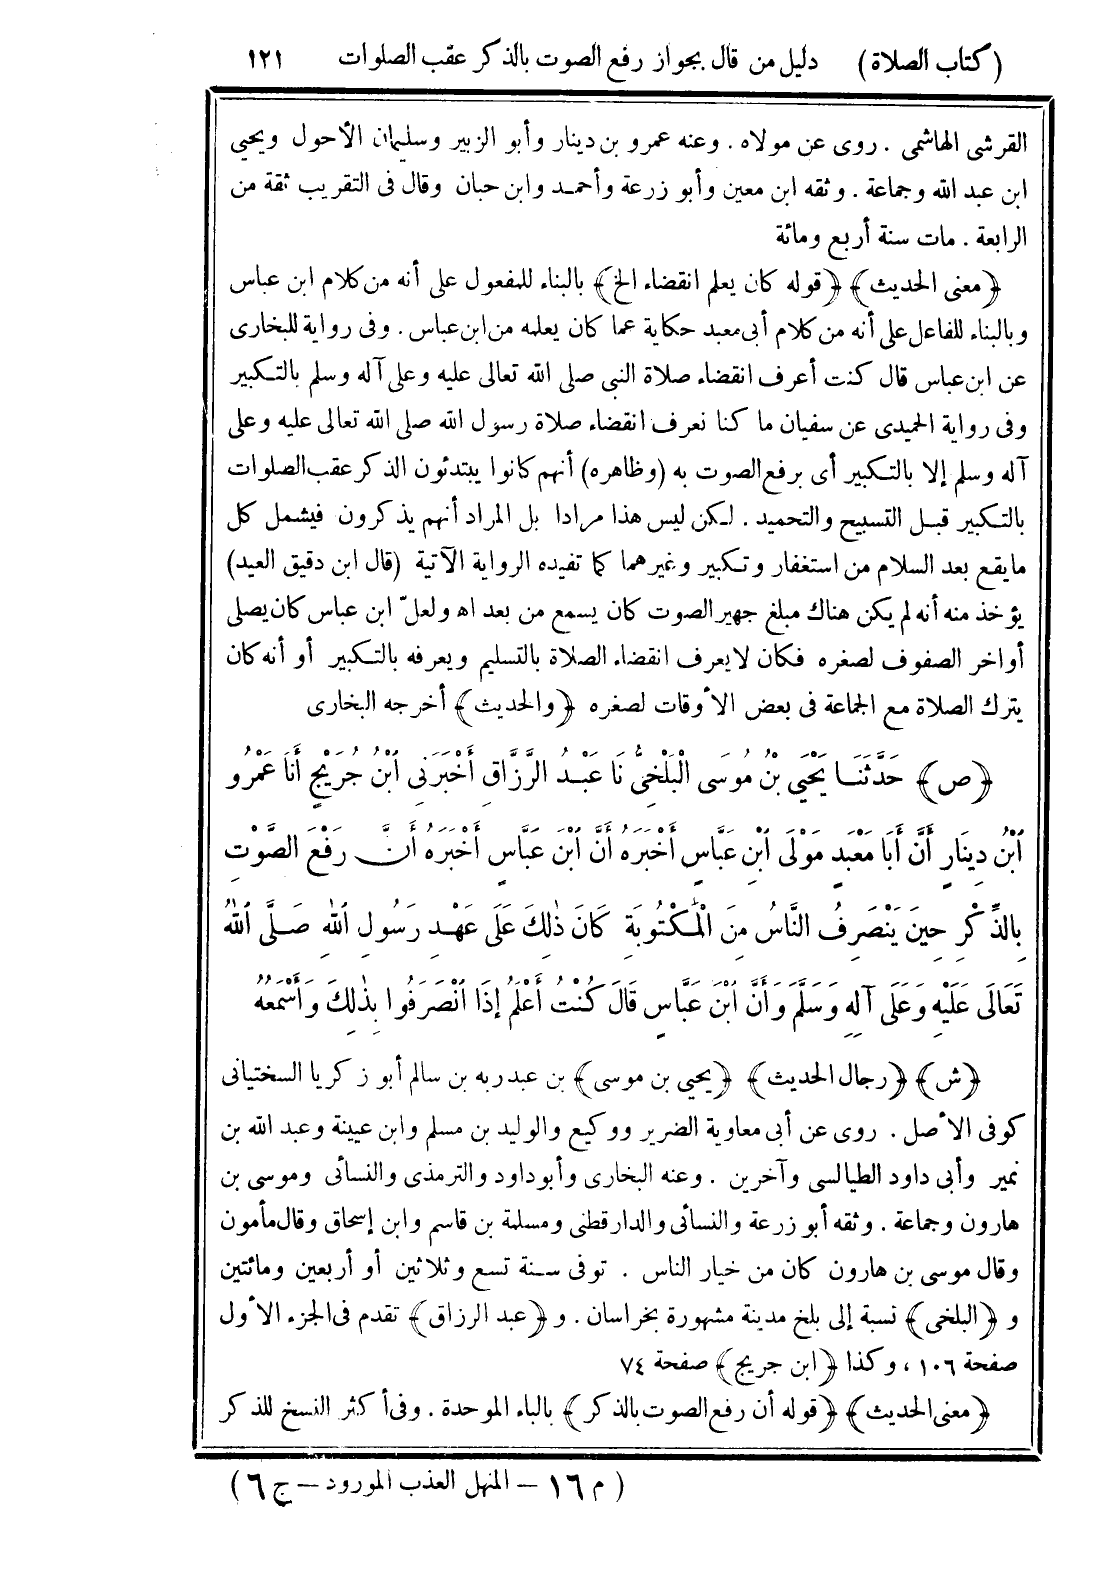 (كتاب الصلاة) دليل من قال بجواز رفع الصوت بالذكر عقب الصلوات ١٢١
القرشى الهاشمى . روى عن مولاه . وعنه عمرو بن دينار وأبو الزبير وسليمان الأحول ويحيى
ابن عبد الله وجماعة . وثقه ابن معين وأبو زرعة وأحمد وابن حبان وقال فى التقريب ثقة من
الرابعة . مات سنة أربع ومائة
﴿معنى الحديث﴾ ﴿قوله كان يعلم انقضاء الخ﴾ بالبناء للمفعول على أنه من كلام ابن عباس
وبالبناء للفاعل على أنه من كلام أبى معبد حكاية عما كان يعلمه من ابن عباس . وفى رواية للبخارى
عن ابن عباس قال كنت أعرف انقضاء صلاة النبى صلى الله تعالى عليه وعلى آله وسلم بالتكبير
وفى رواية الحميدى عن سفيان ما كنا نعرف انقضاء صلاة رسول الله صلى الله تعالى عليه وعلى
آله وسلم إلا بالتكبير أى برفع الصوت به (وظاهره) أنهم كانوا يبتدئون الذكر عقب الصلوات
بالتكبير قبل التسبيح والتحميد . لكن ليس هذا مرادا بل المراد أنهم يذكرون فيشمل كل
مايقع بعد السلام من استغفار وتكبير وغيرهما كما تفيده الرواية الآتية (قال ابن دقيق العيد)
يؤخذ منه أنه لم يكن هناك مبلغ جهير الصوت كان يسمع من بعد اه ولعلّ ابن عباس كان يصلى
أواخر الصفوف لصغره فكان لايعرف انقضاء الصلاة بالتسليم ويعرفه بالتكبير أو أنه كان
يترك الصلاة مع الجماعة فى بعض الأوقات لصغره ﴿والحديث﴾ أخرجه البخارى
﴿ص﴾ حَدَّثَنَا يَحْيَى بْنُ مُوسَى الْبَلْخِىُّ نَا عَبْدُ الرَّزَّاقِ أَخْبَرَنِى ابْنُ جُرَيْجٍ أَنَا عَمْرُو
ابْنُ دِينَارٍ أَنَّ أَبَا مَعْبَدٍ مَوْلَى ابْنِ عَبَّاسٍ أَخْبَرَهُ أَنَّ ابْنَ عَبَّاسٍ أَخْبَرَهُ أَنَّ رَفْعَ الصَّوْتِ
بِالذِّكْرِ حِينَ يَنْصَرِفُ النَّاسُ مِنَ الْمَكْتُوبَةِ كَانَ ذٰلِكَ عَلَى عَهْدِ رَسُولِ اللهِ صَلَّى اللهُ
تَعَالَى عَلَيْهِ وَعَلَى آلِهِ وَسَلَّمَ وَأَنَّ ابْنَ عَبَّاسٍ قَالَ كُنْتُ أَعْلَمُ إِذَا انْصَرَفُوا بِذٰلِكَ وَأَسْمَعُهُ
﴿ش﴾ ﴿رجال الحديث﴾ ﴿يحيى بن موسى﴾ بن عبدربه بن سالم أبو زكريا السختيانى
كوفى الأصل . روى عن أبى معاوية الضرير ووكيع والوليد بن مسلم وابن عيينة وعبد الله بن
نمير وأبى داود الطيالسى وآخرين . وعنه البخارى وأبو داود والترمذى والنسائى وموسى بن
هارون وجماعة . وثقه أبو زرعة والنسائى والدارقطنى ومسلمة بن قاسم وابن إسحاق وقال مأمون
وقال موسى بن هارون كان من خيار الناس . توفى سنة تسع وثلاثين أو أربعين ومائتين
و ﴿البلخى﴾ نسبة إلى بلخ مدينة مشهورة بخراسان . و ﴿عبد الرزاق﴾ تقدم فى الجزء الأول
صفحة ١٠٦ ، وكذا ﴿ابن جريج﴾ صفحة ٧٤
﴿معنى الحديث﴾ ﴿قوله أن رفع الصوت بالذكر﴾ بالباء الموحدة . وفى أكثر النسخ للذكر
(م ١٦ – المنهل العذب المورود – ج ٦)